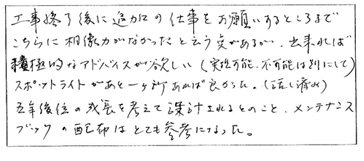 工事終了後に追加の仕事をお願いするところまで
こちらに想像力がなかったと云う点があるが、出来れば
積極的なアドバイスが欲しい(実現可能、不可能は別にして)
スポットライトがあと一ヶ所あれば良かった。(話し済み)
五年後位の成長を考えて設計されるとのこと、メンテナンス
ブックの配布はとても参考になった。